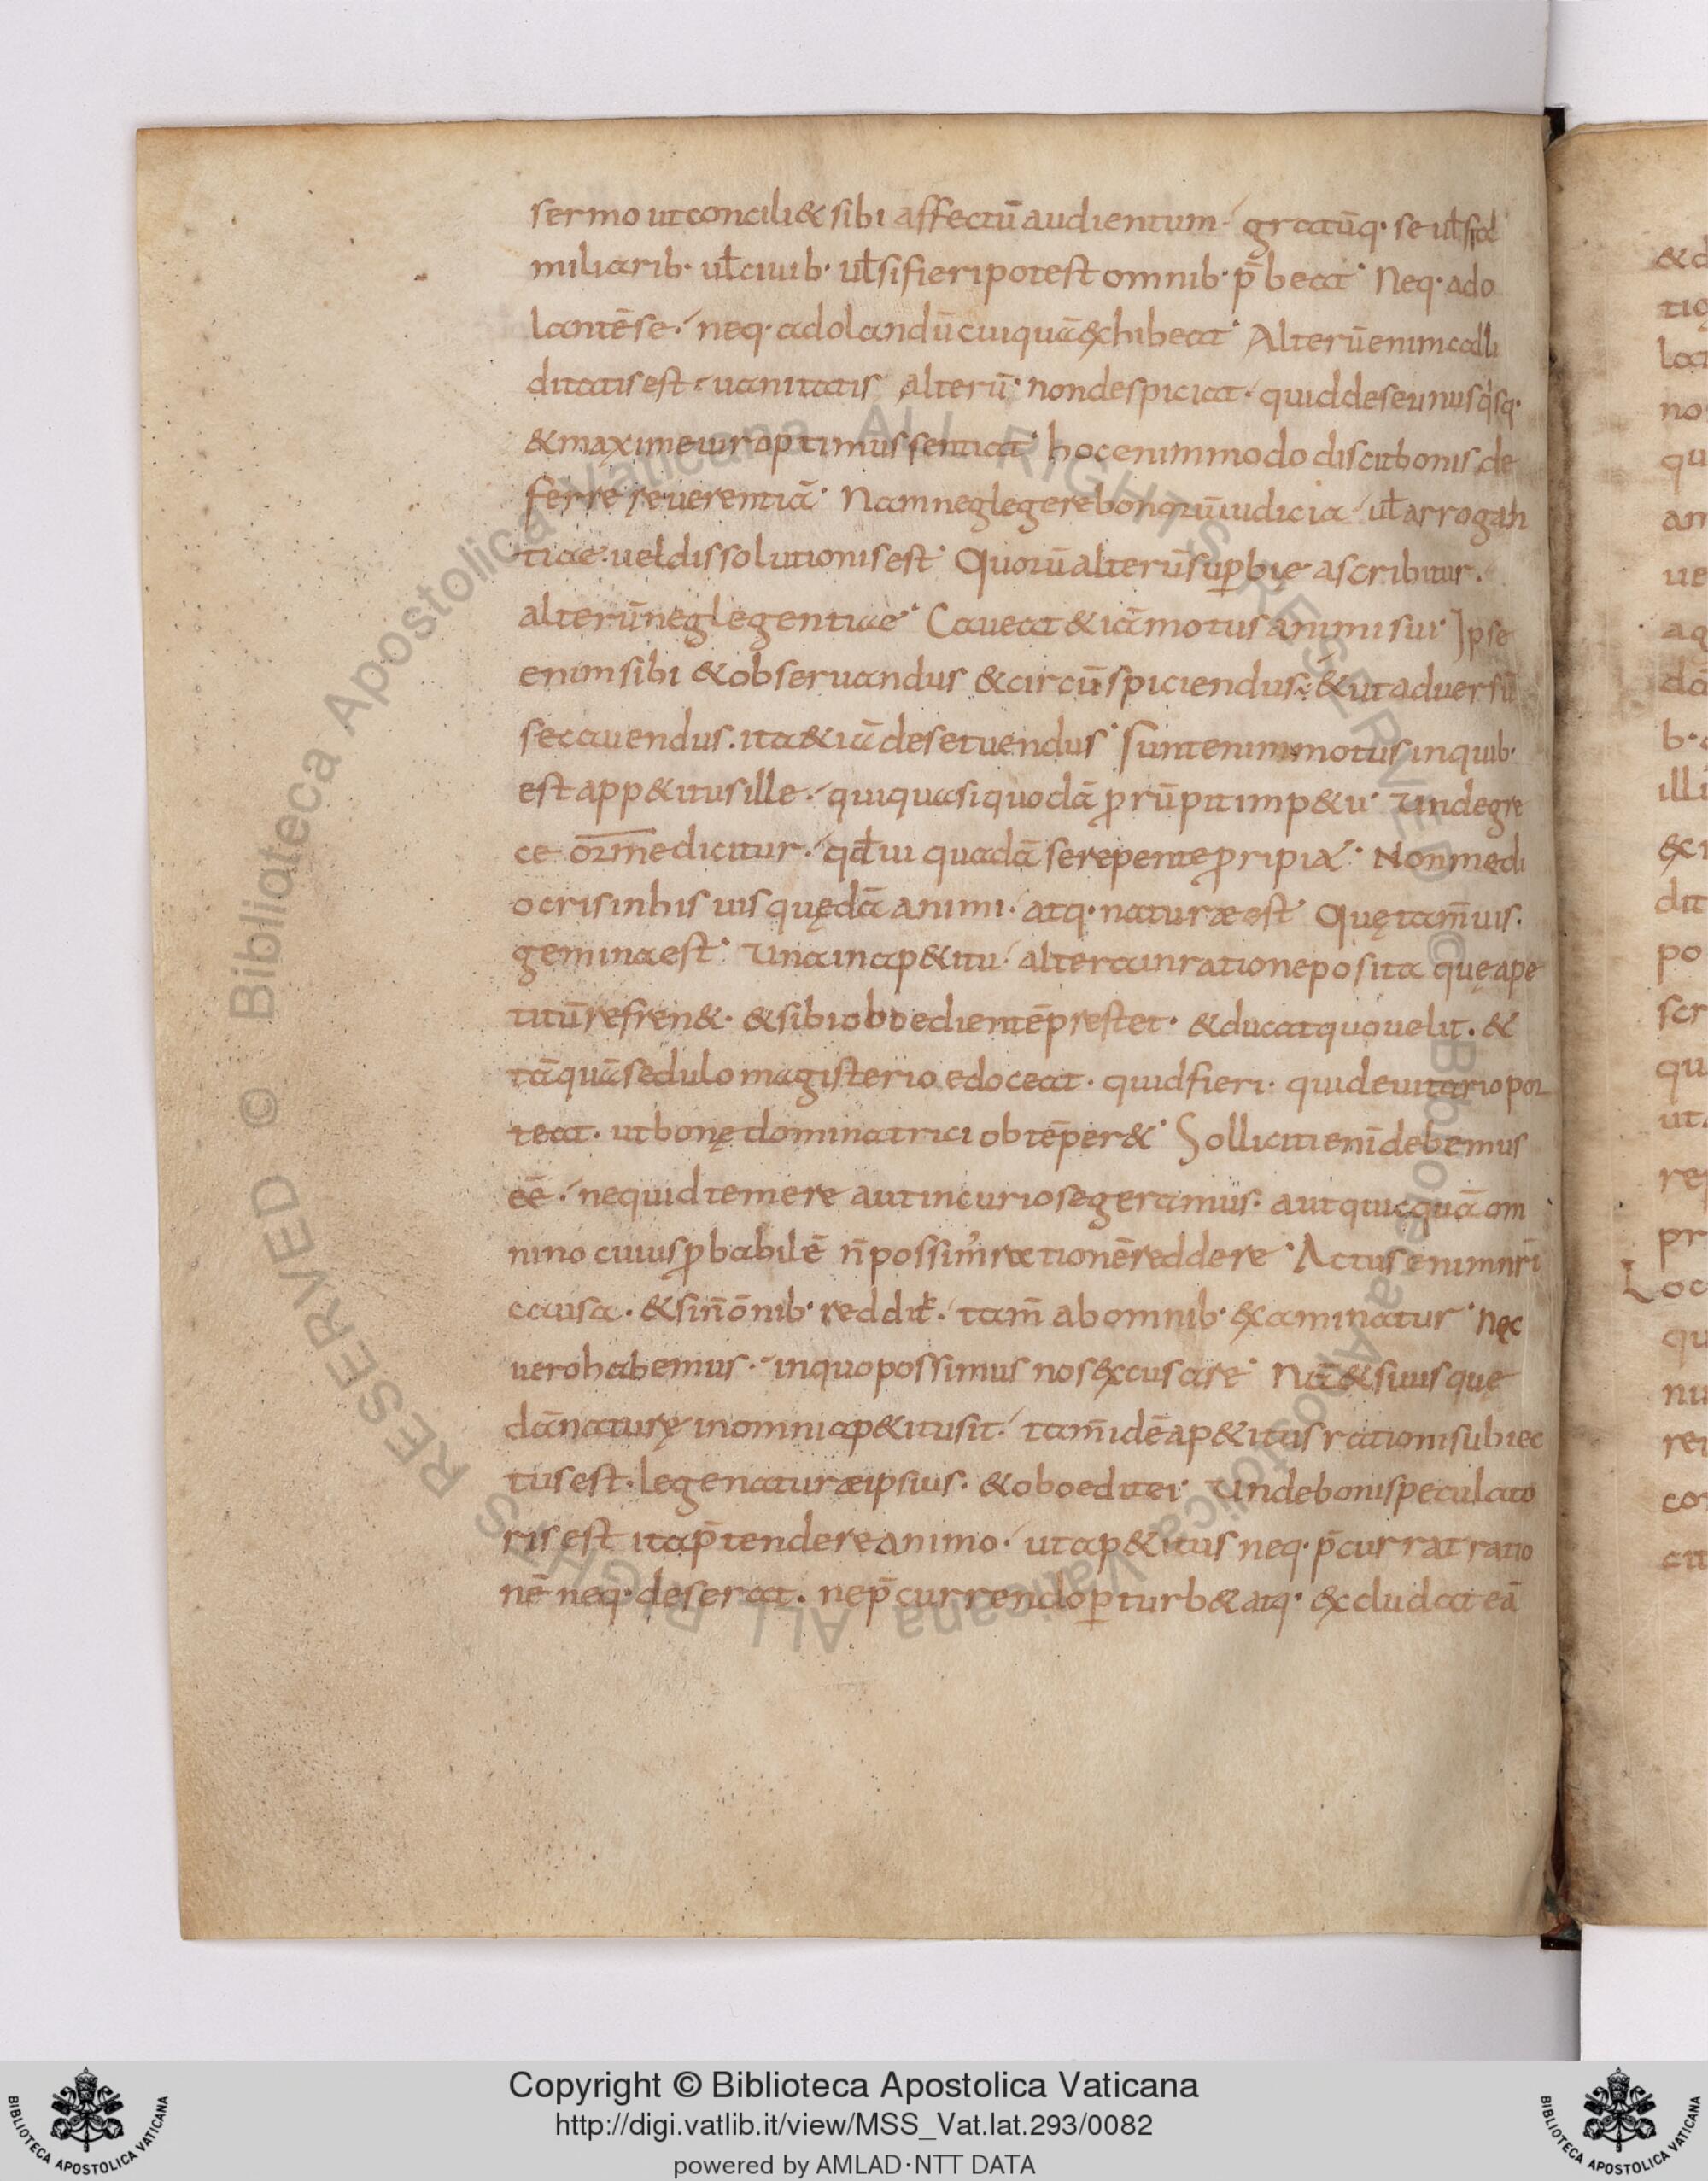 sermo ut concili& sibi affectū audientum. gratūq· se ul̄ fa
miliarib· ul̄ ciuib· ul̄ si fieri potest omnib· p̄beat· Neq· ado
lantē se. neq· adolandū cuiquā exhibeat· Alterū enim calli
ditatis est. uanitatis alterū· non despiciat. quid de se unusq̇sq·
& maxime uir optimus sentiat· hoc enim modo discit bonis de
ferre reuerentiā· Nam neglegere bonorū iudicia ul̄ arrogan
tiae. uel dissolutionis est· Quorū alterū sup̱bię ascribitur.
alterū neglegentiae· Caueat &iā motus animi sui· Ipse
enim sibi & obseruandus & circūspiciendus. & ut aduersū
se cauendus. ita &iā de se tuendus· Sunt enim motus in quib·
est app&itus ille. qui quasi quodā ꝓrūpit imp&u· Unde gre
ce orme dicitur. qd̄ ui quadā se repente ꝓripiat· Non medi
ocris in his uis quędā animi. atq· naturæ est· Quę tam̄ uis.
gemina est· Una in ap&itu alter a in ratione posita quę ape
titū refren&. & sibi oboedientē prestet. & ducat quo uelit. &
tāquā sedulo magisterio edoceat. quid fieri. quid euitari opor
teat. ut bonę dominatrici obtēper&· Solliciti eni̅ debemus
eē. ne quid temere aut incuriose geramus. aut quicquā om
nino cuius ꝓbabilē n̄ possim' rationē reddere· Actus enim nr̄i
causa. & si n̄ ōnib· reddit̄. tam̄ ab omnib· examinatur· Nec
uero habemus. in quo possimus nos excusare· Nā & si uis quę
dā naturę in omni ap&itu sit. tam̄ idē ap&itus rationi subiec
tus est. lege naturæ ipsius. & oboedit ei· Unde boni speculato
ris est ita p̄tendere animo. ut ap&itus neq· p̄currat ratio
nē neq· deserat. ne p̄currendo ꝑturb& atq· excludat eā
& d
tio
lat
no
qu
an
ue
ag
dā
illi
& i
dit
po
scr
qu
ut
re
pr
Loc
qu
nu
rei
co
cit
© Biblioteca Apostolica Vaticana ALL RIGHTS RESERVED © Biblioteca Apostolica Vaticana ALL RIGHTS RESERVED
BIBLIOTECA APOSTOLICA VATICANA
Copyright © Biblioteca Apostolica Vaticana
http://digi.vatlib.it/view/MSS_Vat.lat.293/0082
powered by AMLAD·NTT DATA
BIBLIOTECA APOSTOLICA VATICANA